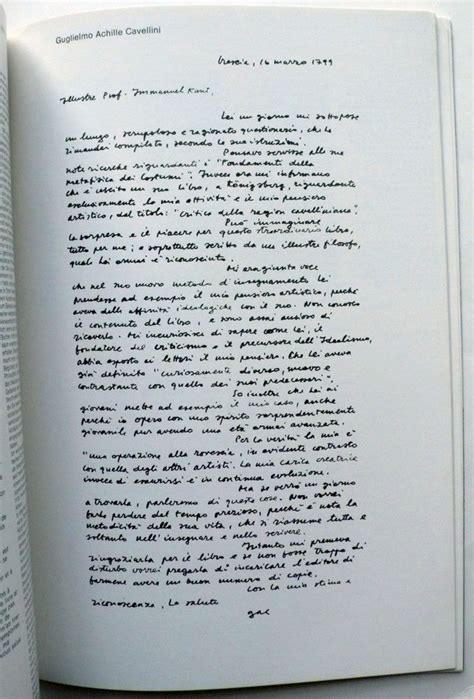 Guglielmo Achille Cavellini
Brescia, 16 marzo 1799
Illustre Prof. Immanuel Kant,
Lei un giorno mi sottopose
un lungo, scrupoloso e ragionato questionario, che le
rimandai compilato, secondo le sue istruzioni.
Pensavo servisse alle sue
note ricerche riguardanti i "Fondamenti della
metafisica dei costumi". Invece ora mi informano
che è uscito un suo libro, a Königsberg, riguardante
esclusivamente la mia attività e il mio pensiero
artistico, dal titolo: "critica della ragion cavelliniana".
Può immaginare
la sorpresa e il piacere per questo straordinario libro,
tutto per me; e soprattutto scritto da un illustre filosofo,
quale Lei ormai è riconosciuto.
Mi era giunta voce
che nel suo nuovo metodo d'insegnamento Lei
prendesse ad esempio il mio pensiero artistico, perché
aveva delle affinità ideologiche con il suo. Non conosco
il contenuto del libro, e sono assai ansioso di
riceverlo. Mi incuriosisce di sapere come Lei, il
fondatore del criticismo e il precursore dell'Idealismo,
abbia esposto ai lettori il mio pensiero. Che Lei aveva
già definito "curiosamente diverso, nuovo e
contrastante con quello dei suoi predecessori".
So inoltre che Lei ai
giovani mette ad esempio il mio caso, anche
perché io opero con uno spirito sorprendentemente
giovanile pur avendo una età ormai avanzata.
Per la verità la mia è
"una operazione alla rovescia", in evidente contrasto
con quella degli altri artisti. La mia carica creatrice
invece di esaurirsi è in continua evoluzione.
Ma se verrò un giorno
a trovarla, parleremo di queste cose. Non vorrei
farle perdere del tempo prezioso, perché è nota la
metodicità della sua vita, che si riassume tutta e
soltanto nell'insegnare e nello scrivere.
Intanto mi premeva
ringraziarla per il libro e se non fosse troppo di
disturbo vorrei pregarla di incaricare l'editore di
farmene avere un buon numero di copie.
Con la mia stima e
riconoscenza, La saluto
gac